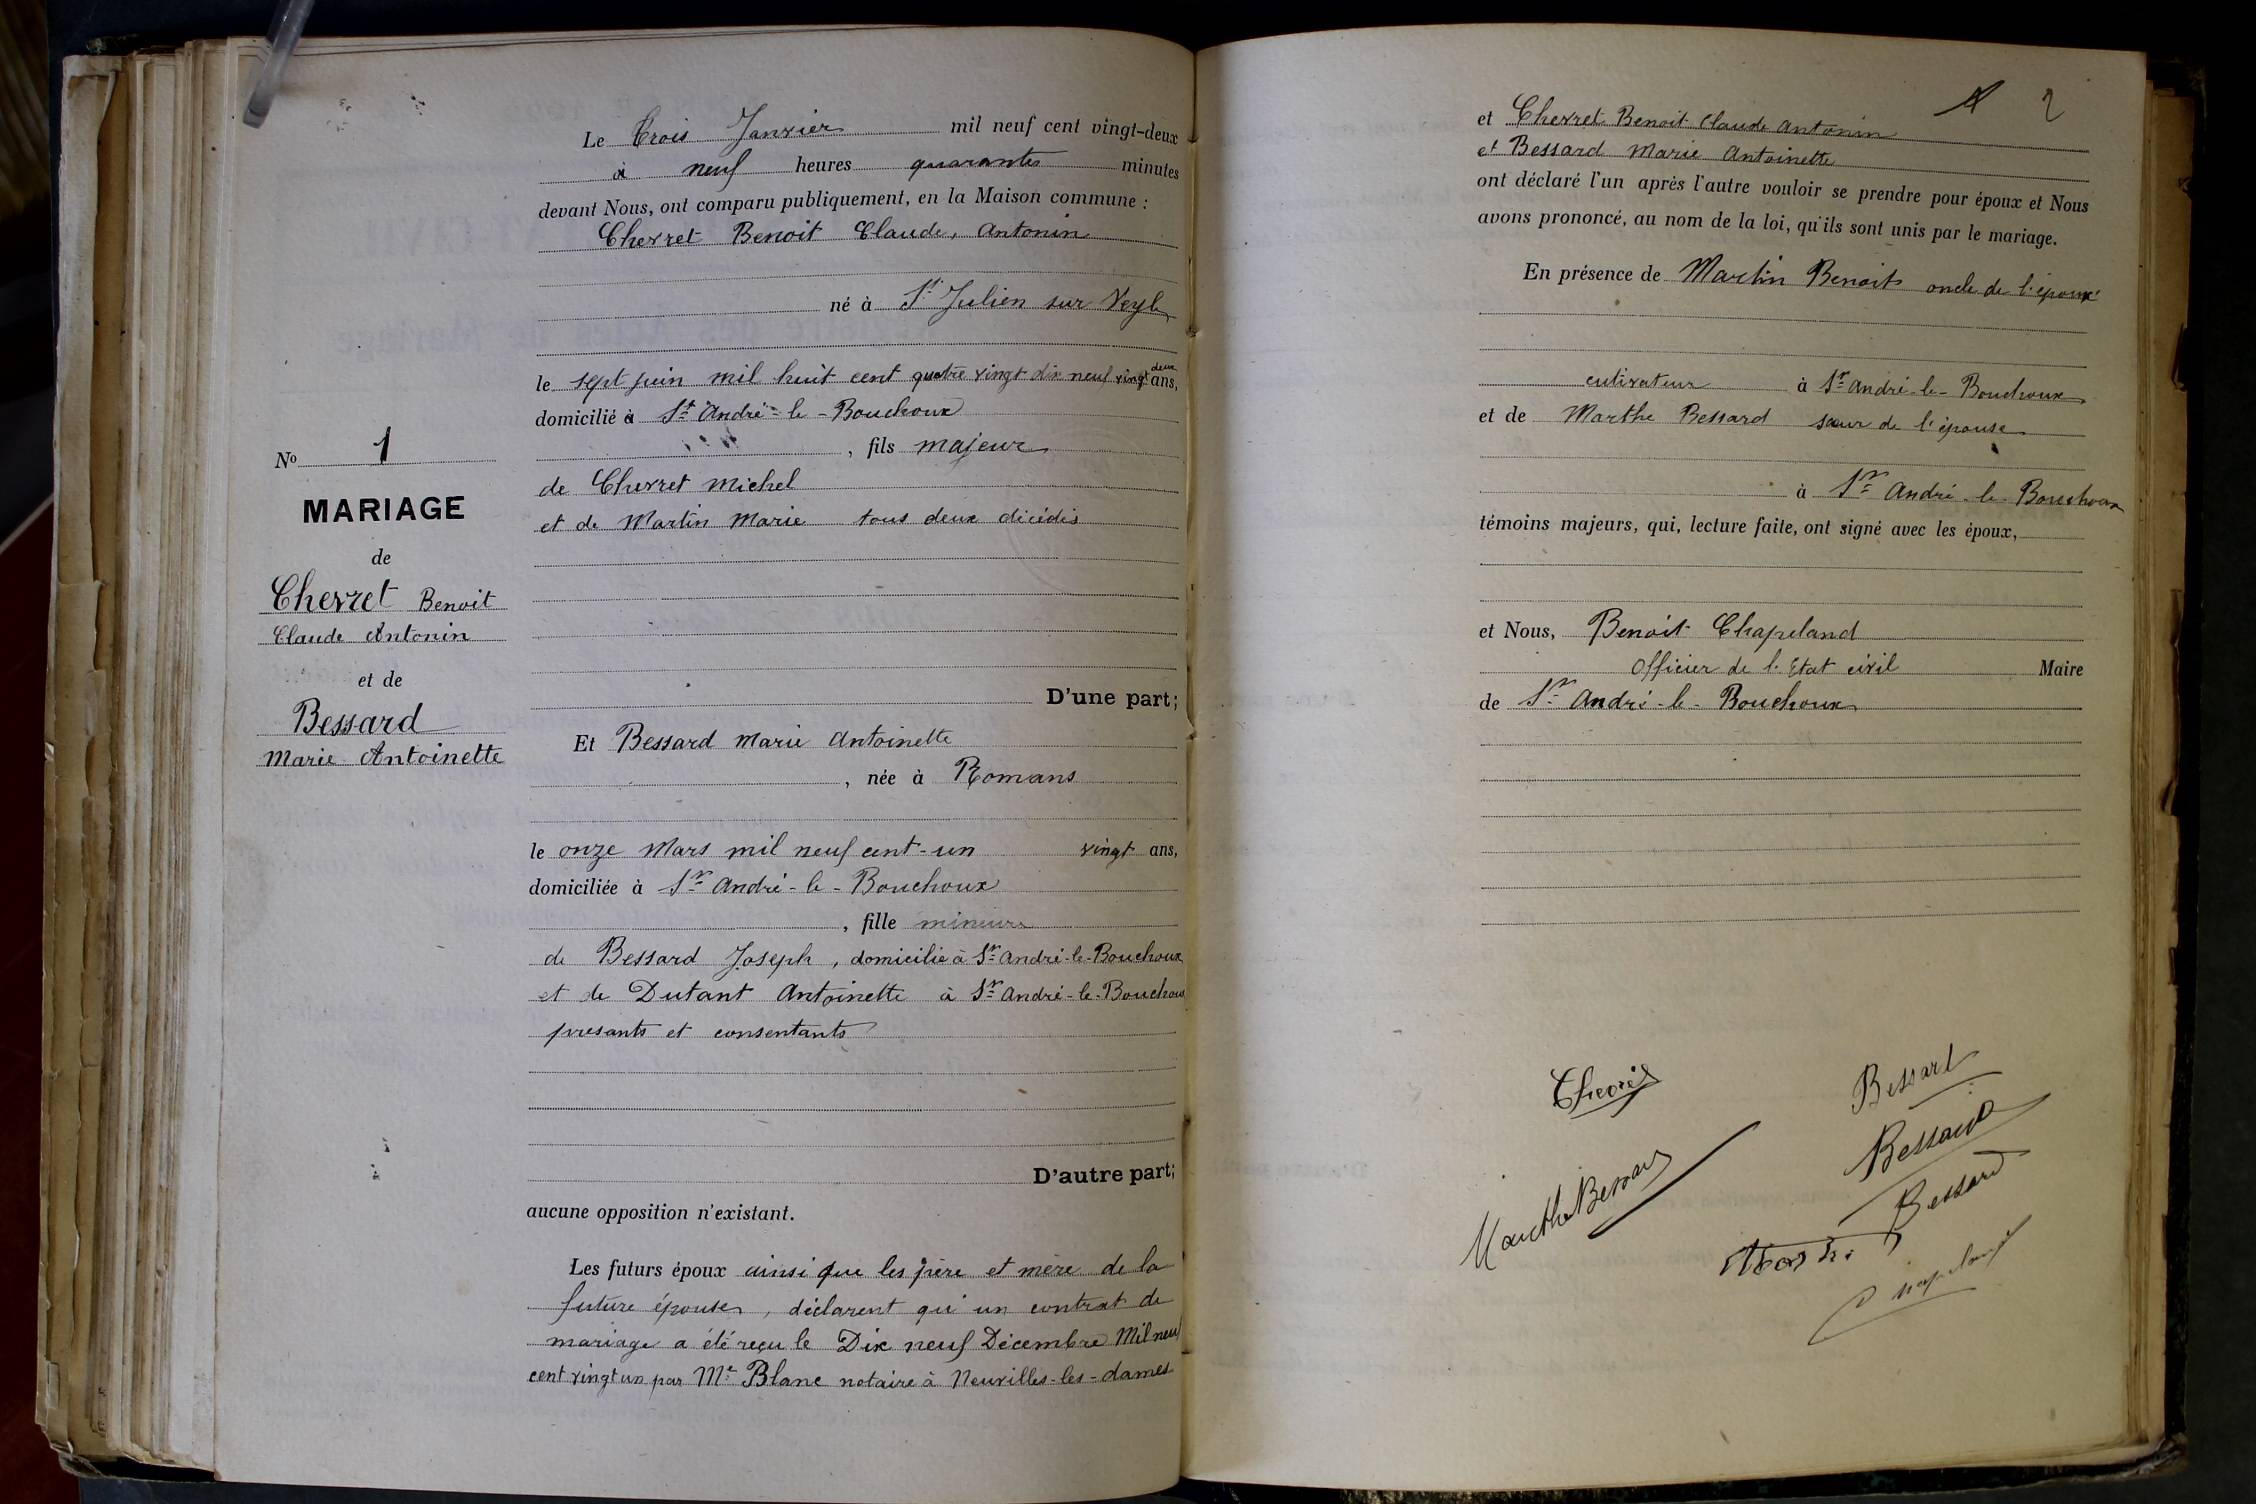 Le Trois Janvier mil neuf cent vingt-deux
à neuf heures quarante minutes
devant Nous, ont comparu publiquement, en la Maison commune :
Chevret Benoit Claude, Antonin
né à St Julien sur Veyle
le sept juin mil huit cent quatre vingt dix neuf vingt deux ans,
domicilié à St André-le-Bouchoux
, fils majeur
de Chevret Michel
et de Martin Marie tous deux décédés
D'une part;
Et Bessard Marie Antoinette
, née à Romans
le onze Mars mil neuf cent-un vingt ans,
domiciliée à St André-le-Bouchoux
, fille mineure
de Bessard Joseph, domicilié à St André-le-Bouchoux
et de Dutant Antoinette à St André-le-Bouchoux
presants et consentants
D'autre part;
aucune opposition n'existant.
Les futurs époux ainsi que les père et mère de la
future épouse, déclarent qu'un contrat de
mariage a été reçu le Dix neuf Décembre Mil neuf
cent vingt un par Me Blanc notaire à Neuvilles-les-dames
No 1
MARIAGE
de
Chevret Benoit
Claude Antonin
et de
Bessard
Marie Antoinette
2
et Chevret Benoit Claude Antonin
et Bessard Marie Antoinette
ont déclaré l'un après l'autre vouloir se prendre pour époux et Nous
avons prononcé, au nom de la loi, qu'ils sont unis par le mariage.
En présence de Martin Benoit oncle de l'époux
cutivateur à St André-le-Bouchoux
et de Marthe Bessard sœur de l'épouse
à St André-le-Bouchoux
témoins majeurs, qui, lecture faite, ont signé avec les époux,
et Nous, Benoit Chapeland
Officier de l'Etat civil Maire
de St André-le-Bouchoux
Chevret
Bessard
Bessard
Marthe Bessard
Bessard
Chapeland